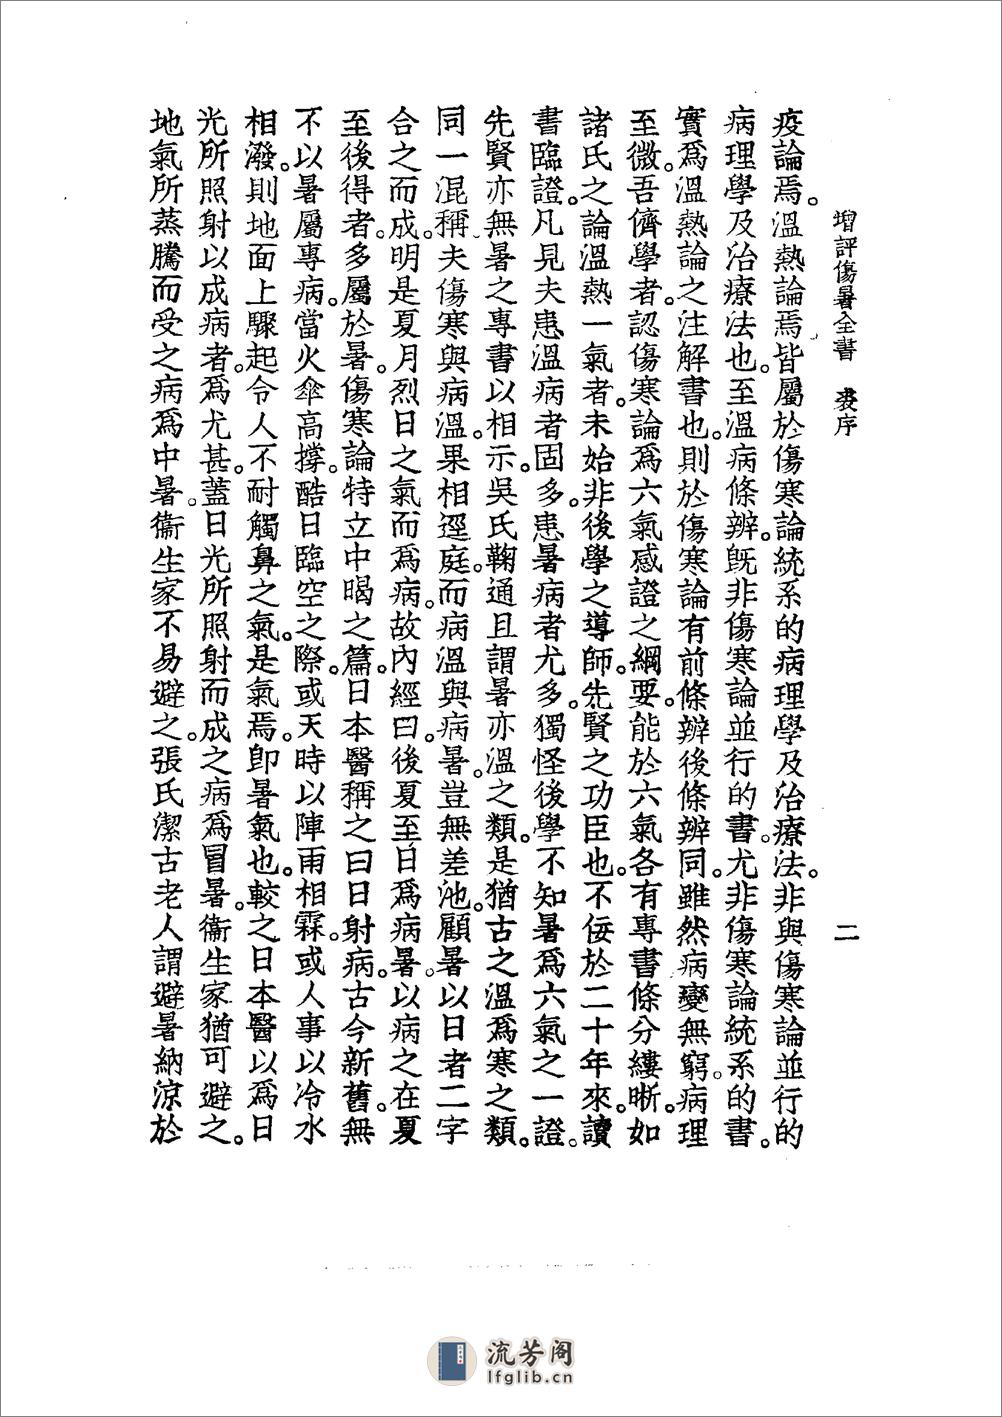 增評傷暑全書　裘序　二
疫論焉。溫熱論焉。皆屬於傷寒論統系的病理學及治療法。非與傷寒論並行的
病理學及治療法也。至溫病條辨。旣非傷寒論並行的書。尤非傷寒論統系的書。
實爲溫熱論之注解書也。則於傷寒論有前條辨後條辨同。雖然病變無窮。病理
至微。吾儕學者。認傷寒論爲六氣感證之綱要。能於六氣各有專書。條分縷晰。如
諸氏之論溫熱一氣者。未始非後學之導師。先賢之功臣也。不佞於二十年來。讀
書臨證。凡見夫患溫病者固多。患暑病者尤多。獨怪後學不知暑爲六氣之一證。
先賢亦無暑之專書以相示。吳氏鞠通且謂暑亦溫之類。是猶古之溫爲寒之類。
同一混稱。夫傷寒與病溫。果相逕庭。而病溫與病暑。豈無差池。顧暑以日者二字
合之而成。明是夏月烈日之氣而爲病。故內經曰。後夏至日爲病暑。以病之在夏
至後得者。多屬於暑。傷寒論特立中暍之篇。日本醫稱之曰日射病。古今新舊。無
不以暑屬專病。當火傘高撐。酷日臨空之際。或天時以陣雨相霖。或人事以冷水
相潑。則地面上驟起令人不耐觸鼻之氣。是氣焉。卽暑氣也。較之日本醫以爲日
光所照射以成病者。爲尤甚。蓋日光所照射而成之病爲冒暑。衞生家猶可避之。
地氣所蒸騰而受之病爲中暑。衞生家不易避之。張氏潔古老人謂避暑納涼於
流芳阁
lfglib.cn